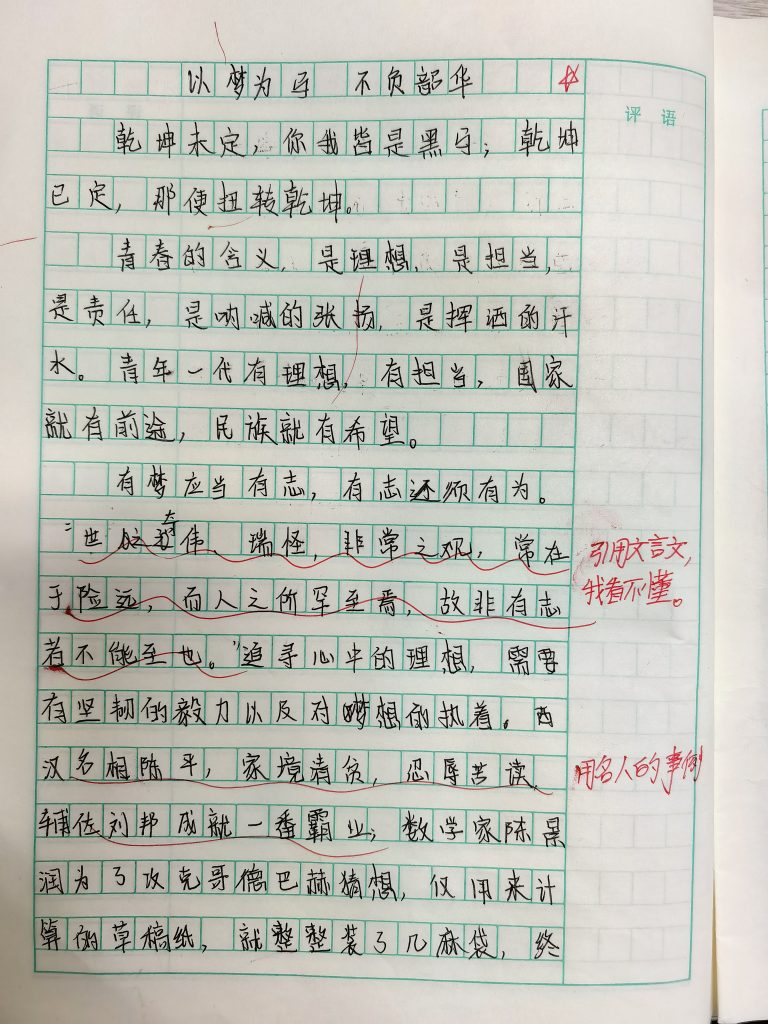 以梦为马 不负韶华
评 语
乾坤未定，你我皆是黑马；乾坤
已定，那便扭转乾坤。
青春的含义，是理想，是担当，
是责任，是呐喊的张扬，是挥洒的汗
水。青年一代有理想，有担当，国家
就有前途，民族就有希望。
有梦应当有志，有志还须有为。
“世奇伟、瑰怪，非常之观，常在
于险远，而人之所罕至焉，故非有志
者不能至也。”追寻心中的理想，需要
有坚韧的毅力以及对梦想的执着。西
汉名相陈平，家境清贫，忍辱苦读，
辅佐刘邦成就一番霸业；数学家陈景
润为了攻克哥德巴赫猜想，仅用来计
算的草稿纸，就整整装了几麻袋，终
引用文言文，
我看不懂。
用名人的事例